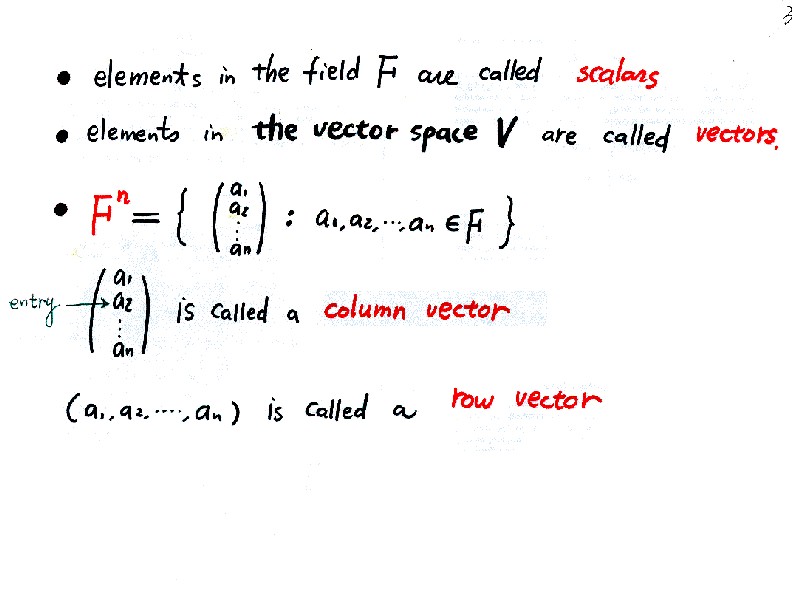 • elements in the field F are called scalars
• elements in the vector space V are called vectors.
• Fⁿ = { (a₁ a₂ ⋮ aₙ) : a₁, a₂, ⋯, aₙ ∈ F }
entry → (a₁ a₂ ⋮ aₙ) is called a column vector
(a₁, a₂, ⋯⋯, aₙ) is called a row vector